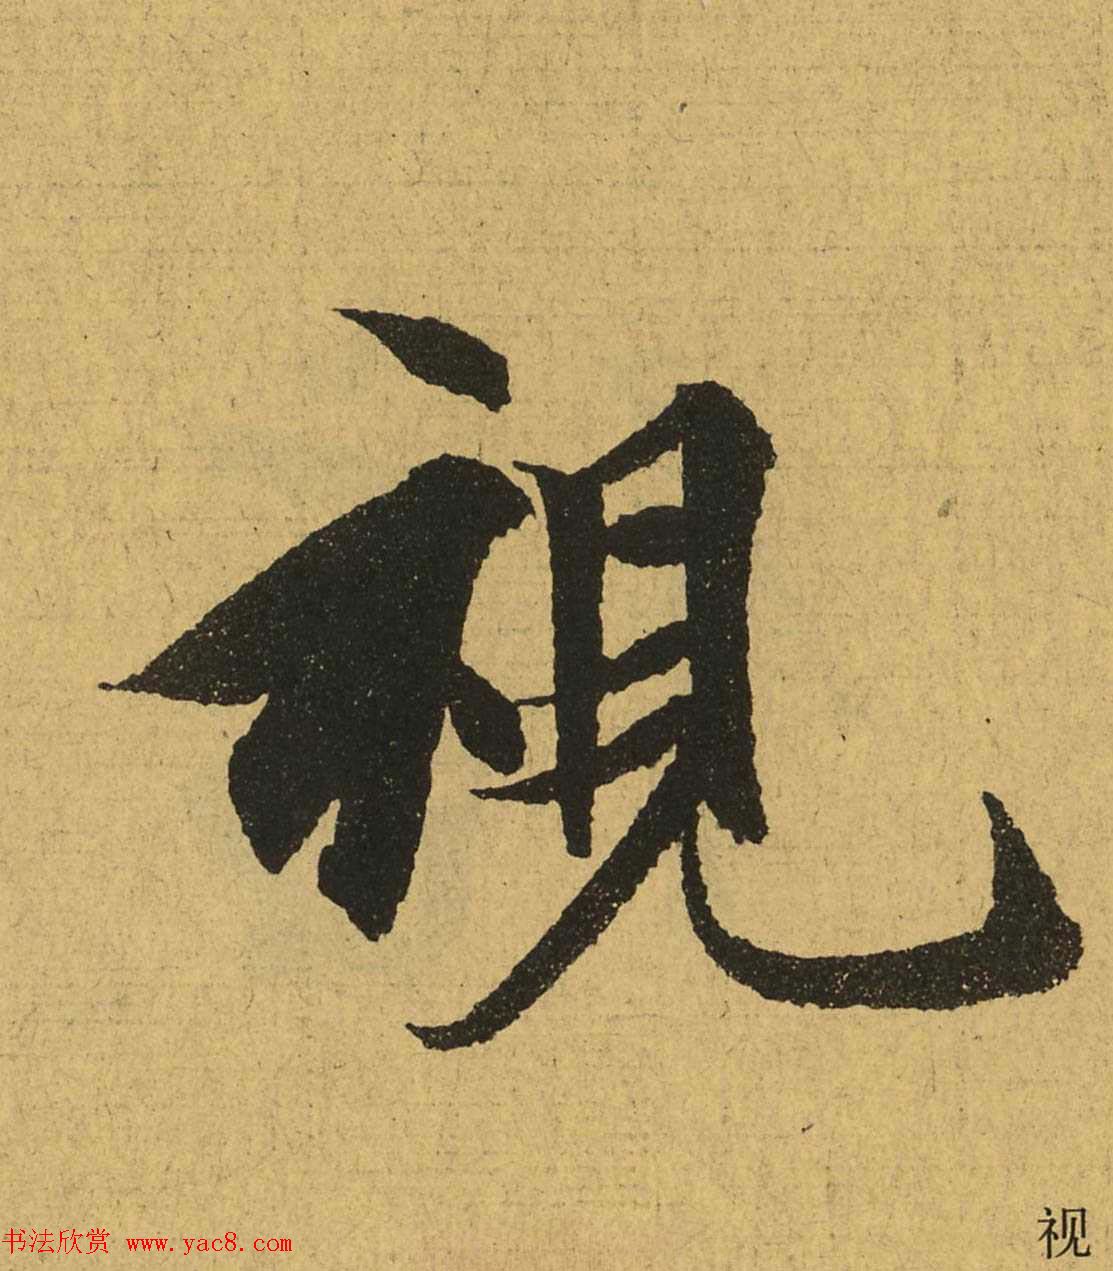 視
视
书法欣赏 www.yac8.com